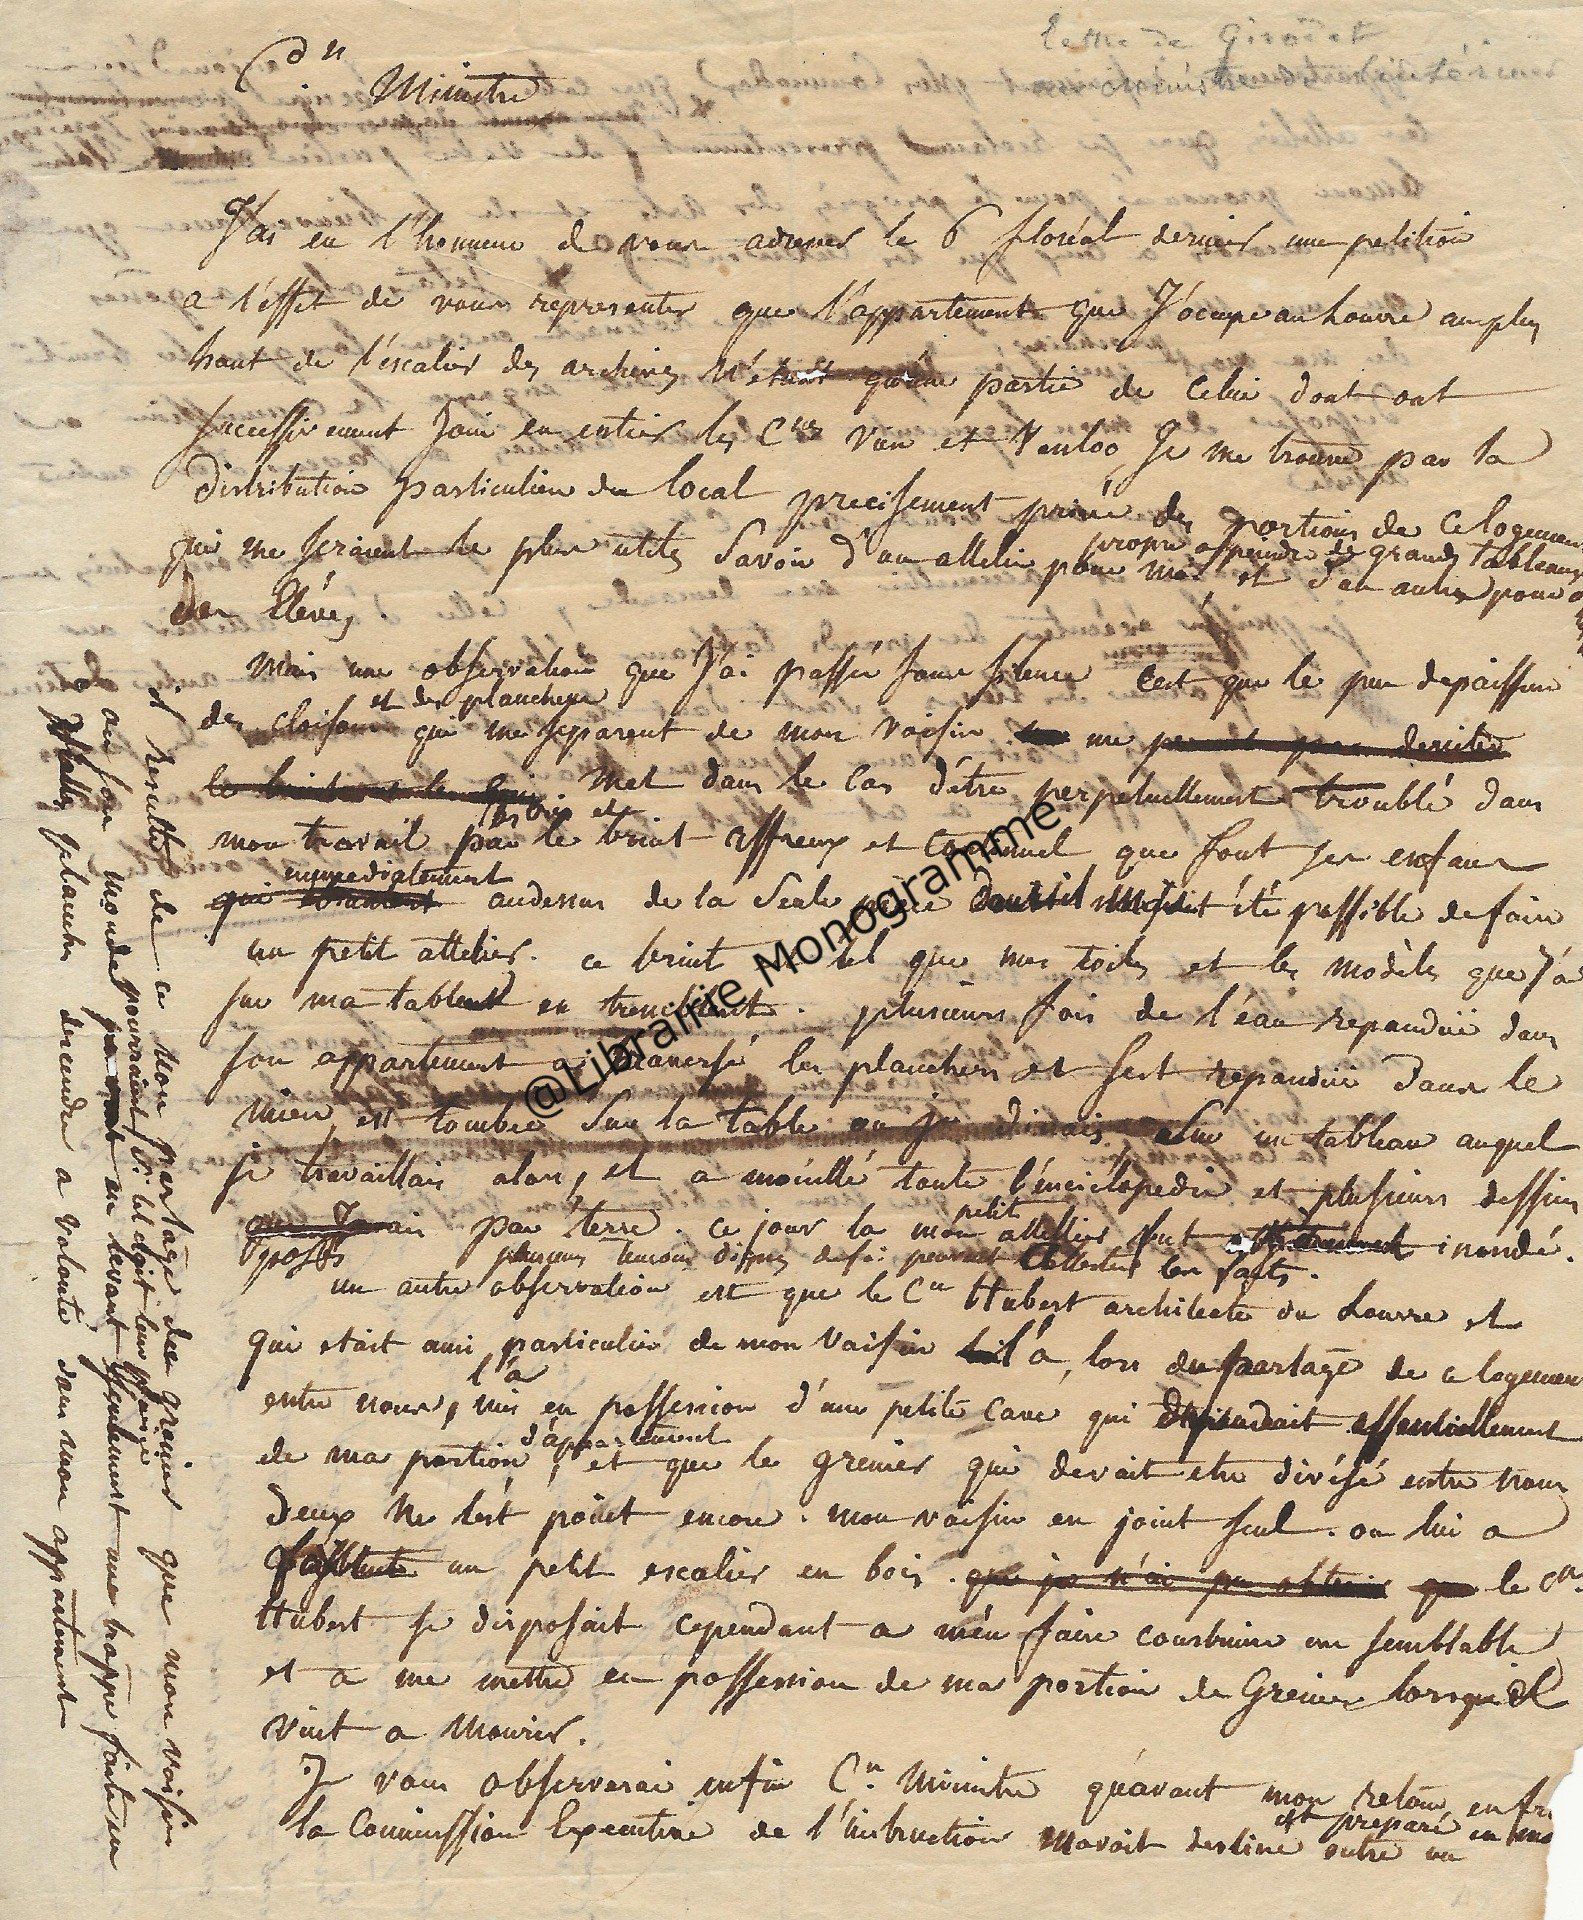 Lettre de Girodet
Cn
Ministre
J'ai eu l'honneur de vous adresser le 6 floréal dernier une petition
a l'effet de vous representer que l'appartement que J'ocupe au Louvre au plus
haut de l'escalier des archives n'étant qu'une partie de celui dont ont
successivement Joui en entier les Cens Vien et Vanloo, Je me trouve par la
distribution particuliere du local precisement privé des portions de ce logement
qui me seraient le plus utiles Savoir d'un attelier propre a peindre de grands tableaux
pour moi et d'un autre pour
des Elèves.
Mais une observation que J'ai passée sous silence c'est que le peu depaisseur
des cloisons et des planchers qui me separent de mon voisin me
met dans le cas d'être perpetuellement troublé dans
mon travail par les cris et le bruit affreux et continuel que font ses enfans
immediatement audessus de la Seule piece dont il m'ait été possible de faire
un petit attelier. ce bruit tel que mes toiles et les modèles que J'a
sur ma table en tremblent. plusieurs fois de l'éau repanduë dans
son appartement a traversé les planchers et sest repanduë dans le
mien, est tombée sur la table ou je dinais, sur un tableau auquel
je travaillais alors, et a moüillé toute l'enciclopedie et plusieurs dessins
posés par terre. ce jour la mon petit attellier fut inondé.
plusieurs temoins dignes de foi peuvent attester les faits.
un autre observation est que le Cn Hubert architecte du Louvre et
qui etait ami particulier de mon voisin l'a, lors du partage de ce logement
entre nous, l'a mis en possession d'une petite cave qui dependait essentiellement
de ma portion d'appartement, et que le grenier qui devait etre divisé entre nous
deux ne lést point encore. mon voisin en joüit seul. on lui a
un petit escalier en bois. que je n'ai pu obtenir le Cn.
Hubert se disposait cependant a m'en faire construire un semblable
et a me mettre en possession de ma portion de Grenier lorsqu'il
vint a mourir.
Je vous observerai enfin Cn. Ministre qu'avant mon retour en fr
la Commission Executive de l'instruction m'avoit destiné et preparé outre un
il resulte de ce non partage des greniers que mon voisin
ou son monde pourraient s'il leur plaisait
en levant seulement une trappe faite en
planches descendre a volonté dans mon appartement